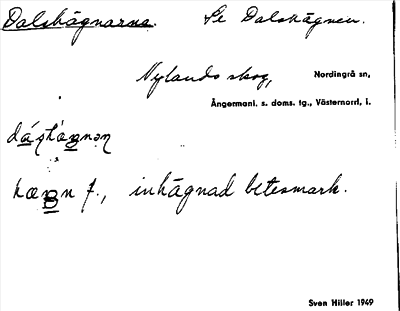 Dalshägnarna. Se Dalshägnen.
Nylands skog, Nordingrå sn,
Ångermanl. s. doms. tg., Västernorrl. l.
f., inhägnad betesmark.
Sven Hiller 1949